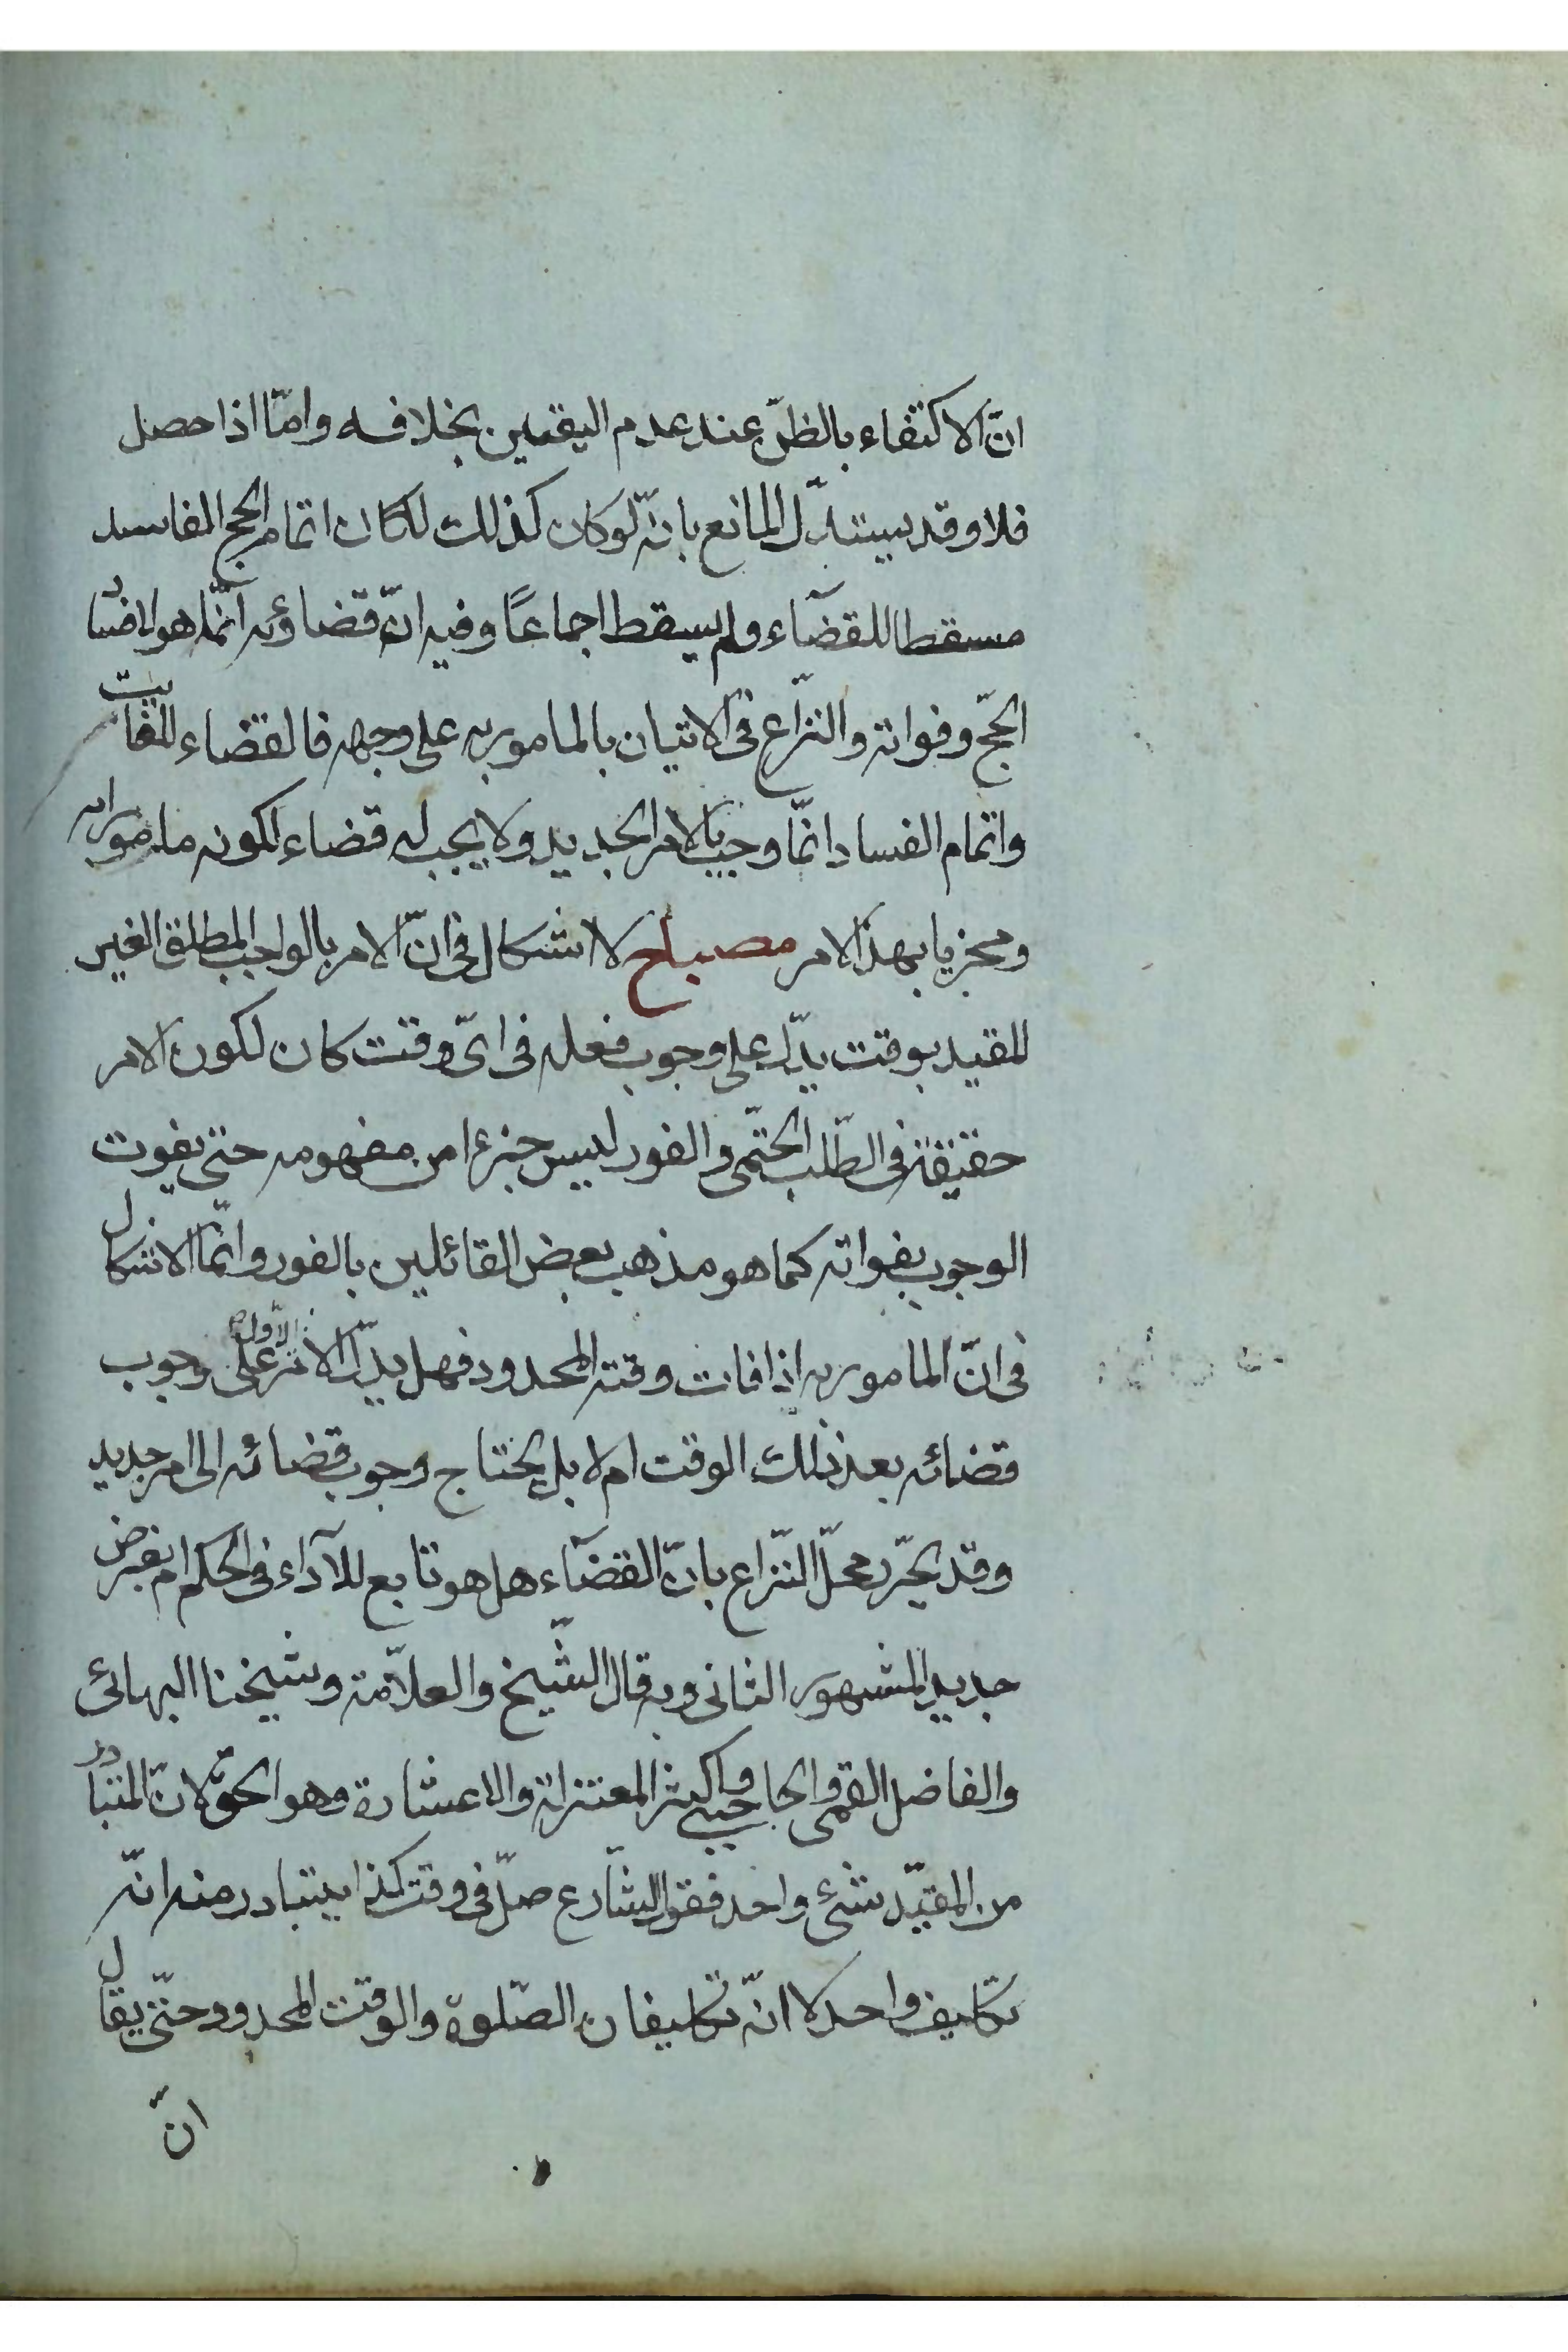 انّ الاكتفاء بالظنّ عند عدم اليقين بخلافه وامّا اذا حصل
فلا وقد يستدلّ المانع بانّه لو كان كذلك لكان اتمام الحج الفاسد
مسقطا للقضآء ولم يسقط اجماعًا وفيه انّ قضاؤه انّما هو لافساد
الحجّ وفواته والنزّاع فى الاتيان بالمامور به على وجهه فالقضاء للفايت
واتمام الفساد انمّا وجب بالامر الجديد ولا يجب له قضاء لكونه مامورا به
ومجزيا بهذا الامر مصباح لا اشكال فى انّ الامر بالواجب المطلق الغير
المقيد بوقت يدّل على وجوب فعله فى اىّ وقت كان لكون الامر
حقيقة فى الطّلب الحتمّى والفور ليس جزءا من مفهومه حتى يفوت
الوجوب بفواته كما هو مذهب بعض القائلين بالفور وانّما الاشكال
فى انّ المامور به اذا فات وقته المحدود فهل يدّل الامر الاوّل على وجوب
قضائه بعد ذلك الوقت ام لا بل يحتاج وجوب قضائه الى امر جديد
وقد يحّرر محلّ النّزاع بانّ القضآء هل هو تابع للآداء فى الحكم ام بفرض
جديد المشهور الثانى وبه قال الشّيخ والعلاّمة وشيخنا البهائى
والفاضل القمى والحاجبى واكثر المعتزلة والاعشارة وهو الحقّ لانّ المتبادر
من المقيّد شئ واحد فقول الشّارع صلّ فى وقت كذا يتبادر منه انّه
تكليف واحد لا انّه تكليفان الصّلوة والوقت المحدود حتىّ يقال
انّ